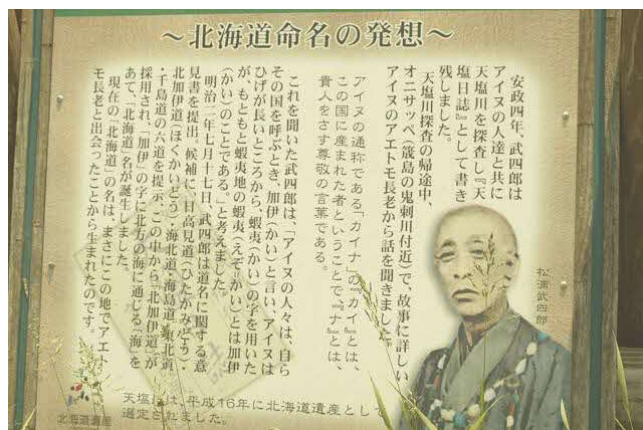 ～北海道命名の発想～
安政四年、武四郎は
アイヌの人達と共に
天塩川を探査し『天
塩日誌』として書き
残しました。
天塩川探査の帰途中、
オニサッペ(筬島の鬼刺川付近)で、故事に詳しい
アイヌのアエトモ長老から話を聞きました。
アイヌの通称である「カイナ」の『カイ』とは、
この国に産まれた者ということで、『ナ』とは、
貴人をさす尊敬の言葉である。
これを聞いた武四郎は、「アイヌの人々は、自ら
その国を呼ぶとき、加伊(かい)と言い、アイヌは
ひげが長いところから、蝦夷(かい)の字を用いた
が、もともと蝦夷地の蝦夷(えぞ・かい)とは加伊
(かい)のことである。」と考えました。
明治二年七月十七日、武四郎は道名に関する意
見書を提出、候補に「日高見道(ひたかみどう)・
北加伊道(ほくかいどう)・海北道・海島道・東北道
・千島道の六道を提示、この中から「北加伊道」が
採用され、「加伊」の字に北方の海に通じる「海」を
あて、「北海道」名が誕生しました。
現在の「北海道」の名は、まさにこの地でアエト
モ長老と出会ったことから生まれたのです。
松浦武四郎
天塩川は、平成16年に北海道遺産として
選定されました。
北海道遺産